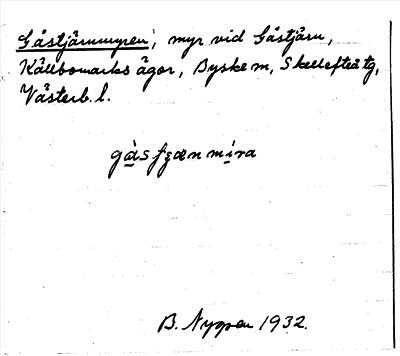 Gåstjärnmyren, myr vid Gåstjärn,
Källbomarks ägor, Byske m, Skellefteå tg,
Västerb. l.
gȧsfȷænmi̱ra
B. Nygren 1932.